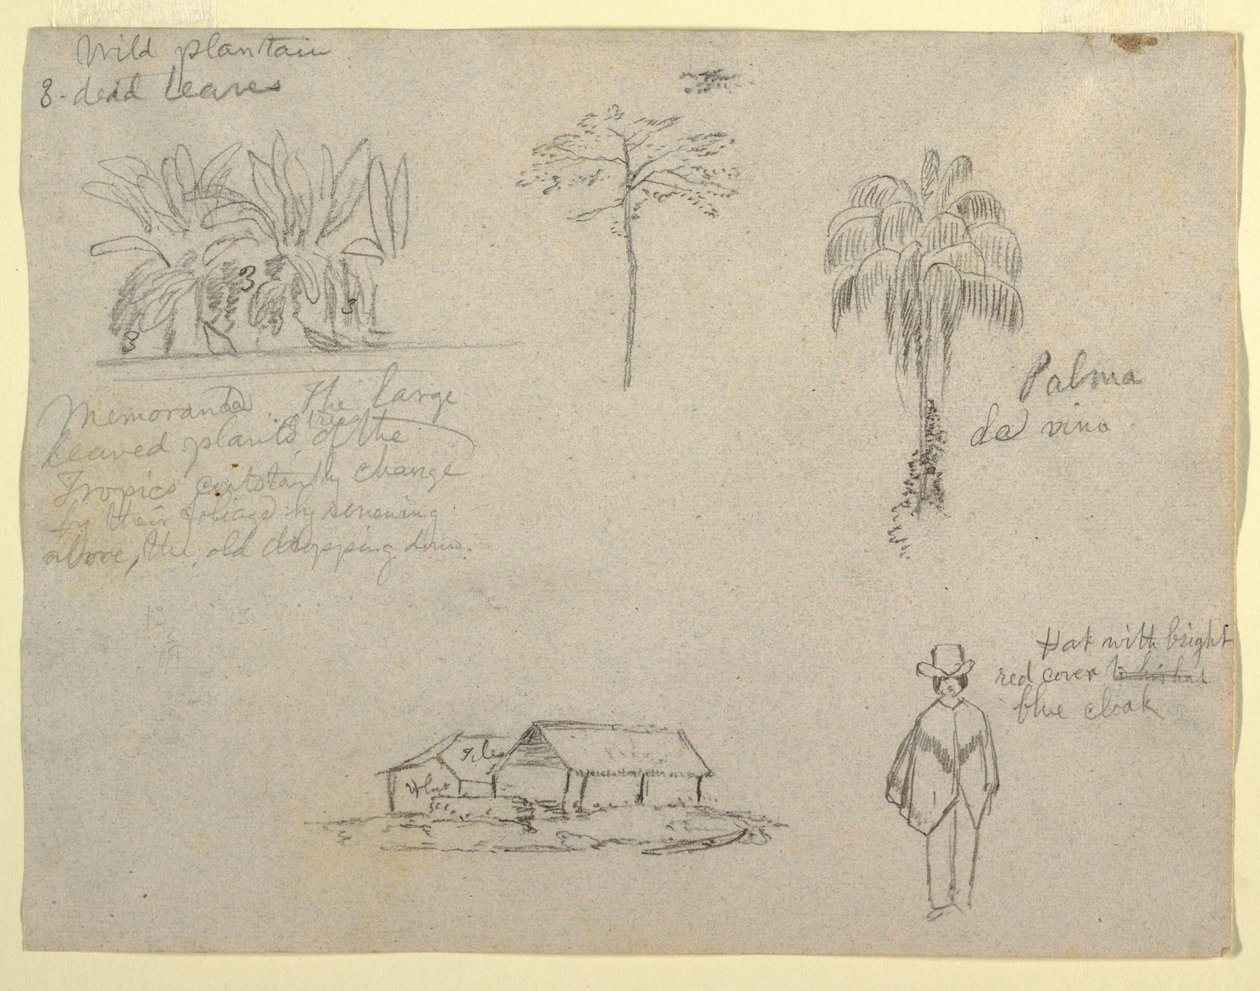 Wild plantain
3 - dead leaves
3
3
3
3
Memoranda. The large
leaved plants, trees, of the
Tropics constantly change
by their foliage by renewing
above, the old dropping down.
Palma
de vino
Hat with bright
red cover to his hat
blue cloak
Tiles